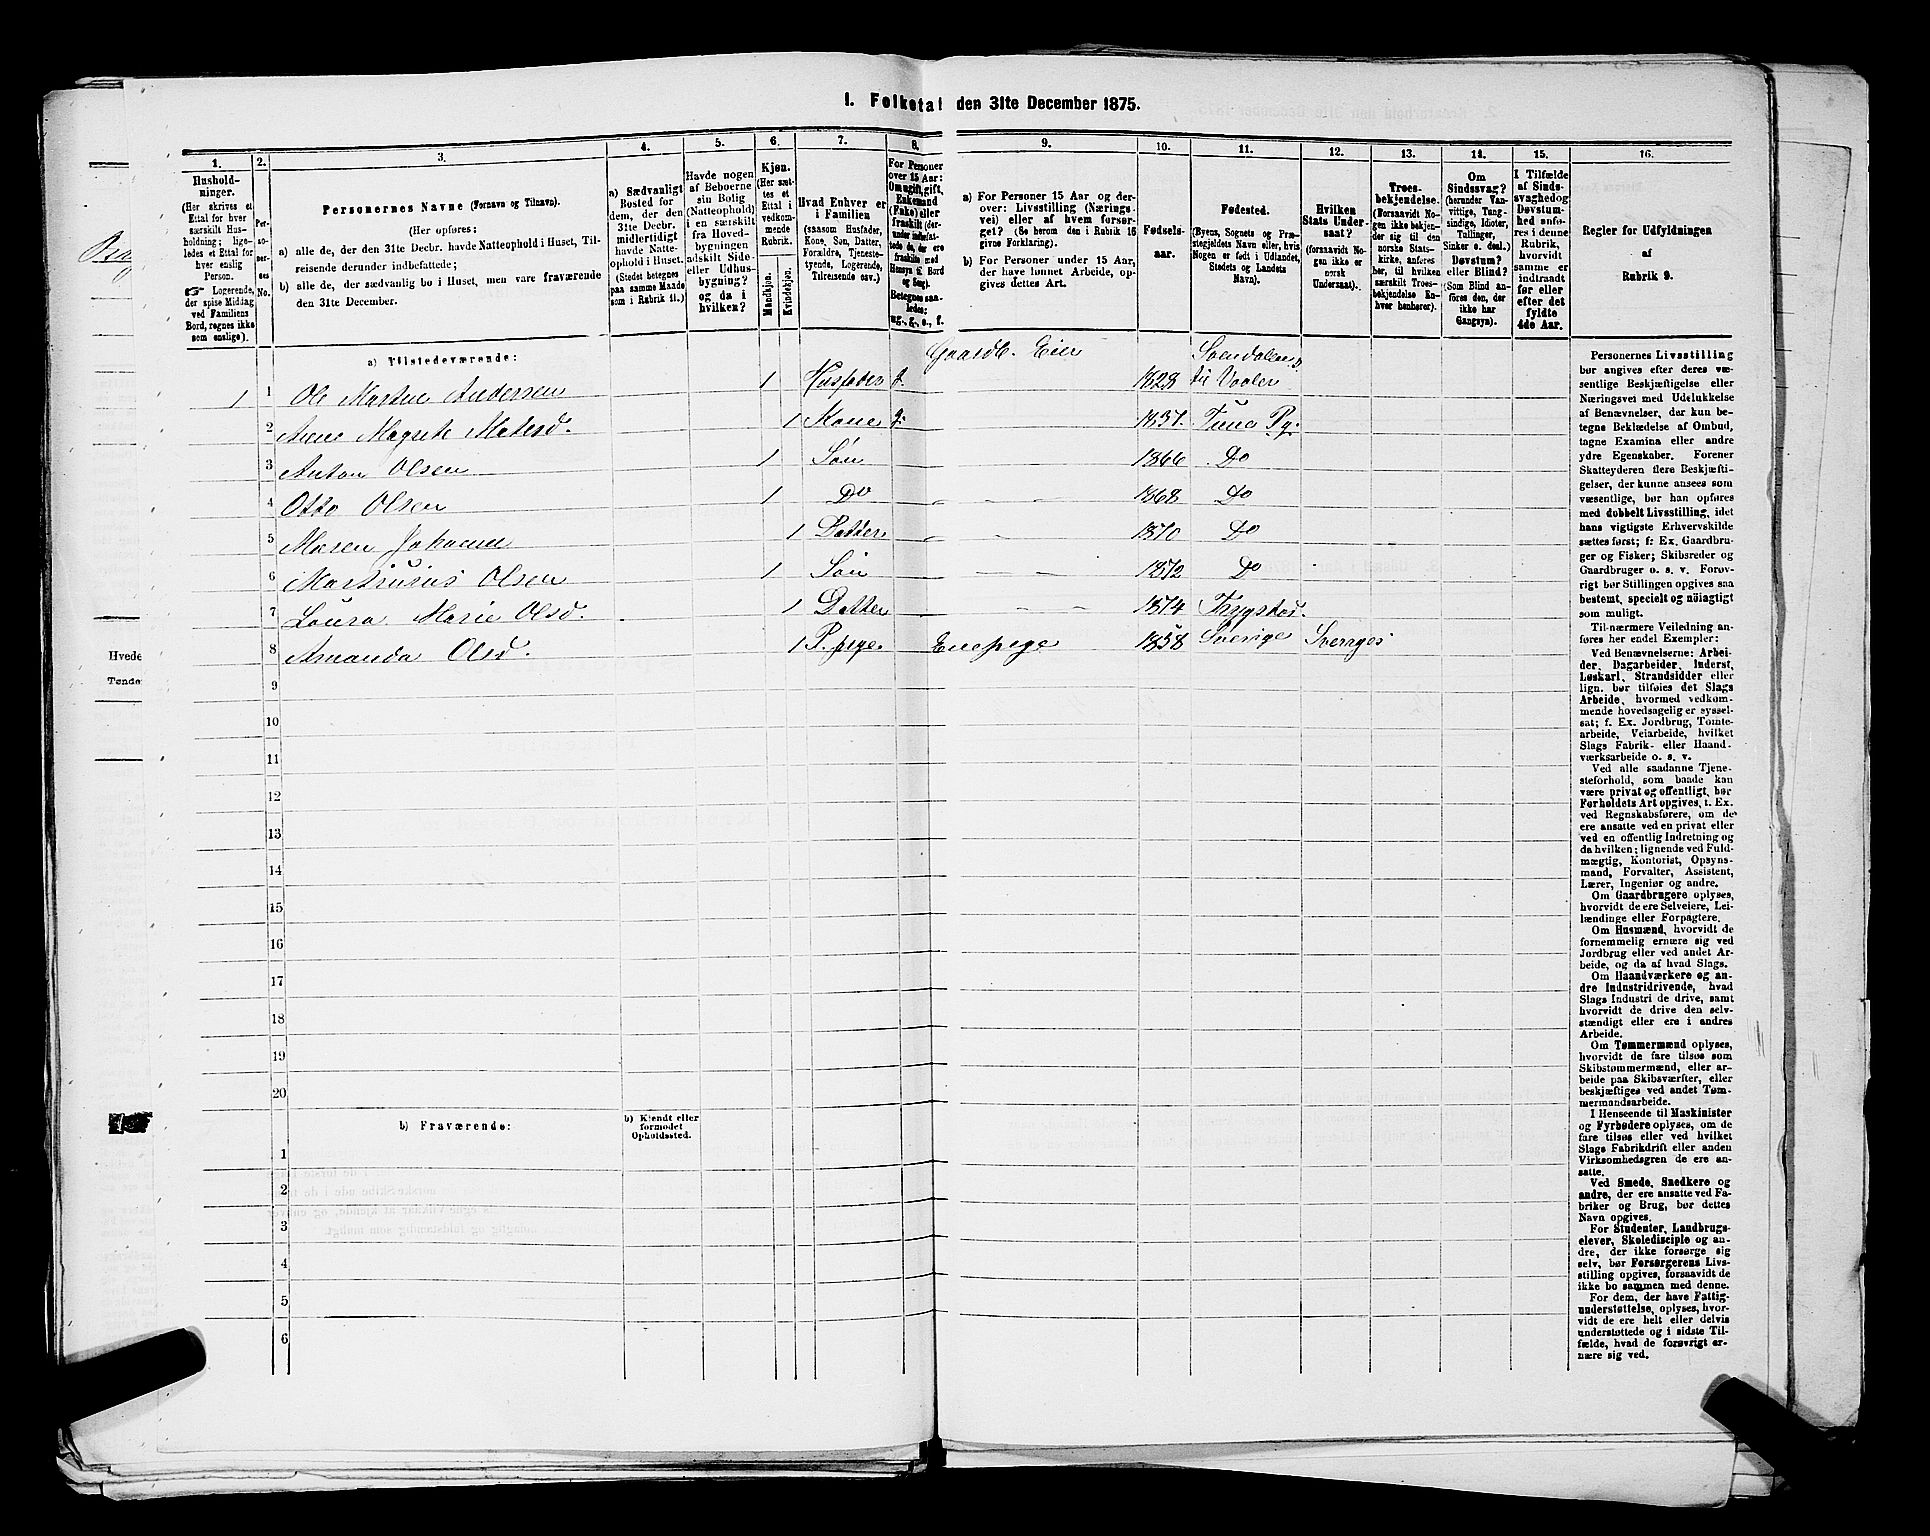 I. Folketal den 31te December 1875.
1. 2. 3. 4. 5. 6. 7. 8. 9. 10. 11. 12. 13. 14. 15. 16.
Husholdninger.
(Her skrives et
Ettal for hver
særskilt Husholdning;
ligeledes et Ettal for
hver enslig
Person.
Logerende,
der spise Middag
ved Familiens
Bord, regnes ikke
som enslige).
Personernes No.
Personernes Navne (Fornavn og Tilnavn).
(Her opføres:
a) alle de, der den 31te Decbr. havde Natteophold i Huset, Tilreisende derunder indbefattede;
b) alle de, der sædvanlig bo i Huset, men vare fraværende
den 31te December.
a) Sædvanligt
Bosted for
dem, der den
31te Decbr.
midlertidigt
havde Natteophold
i Huset.
(Stedet betegnes
paa samme Maade
som i Rubrik 11.)
Havde nogen
af Beboerne
sin Bolig
(Natteophold)
i en særskilt
fra Hovedbygningen
adskilt Side-
eller Udhusbygning?
og da i
hvilken?
Kjøn.
(Her sættes et
Ettal i
vedkommende
Rubrik.
Mandkjøn.
Kvindekjøn.
Hvad Enhver er
i Familien
(saasom Husfader,
Kone, Søn, Datter,
Forældre, Tjenestetyende,
Logerende,
Tilreisende osv.)
For Personer
over 15 Aar:
Om ugift, gift,
Enkemand
(Enke) eller
fraskilt
Betegnes saaledes:
ug., g., e., f.
a) For Personer 15 Aar og derover:
Livsstilling (Næringsvei)
eller af hvem forsørget?
(Se herom den i Rubrik 16
givne Forklaring).
b) For Personer under 15 Aar,
der have lønnet Arbeide, opgives
dettes Art.
Fødselsaar.
Fødested.
(Byens, Sognets og Præstegjeldets
Navn eller, hvis
Nogen er født i Udlandet,
Stedets og Landets
Navn).
Hvilken
Stats Undersaat?
(forsaavidt Nogen
ikke er
norsk
Undersaat).
Troesbekjendelse.
(Forsaavidt Nogen
ikke bekjender
sig til den
norske Statskirke,
anføres
her, til hvilken
særskilt Troesbekjendelse
Enhver henhører).
Om
Sindssvag?
(herunder Vanvittige,
Tungsindige,
Idioter,
Tullinger,
Sinker o. desl.)
Døvstum?
eller Blind?
(Som Blind anføres
den, der
ikke har
Gangsyn).
I Tilfælde
af Sindssvaghed
og Døvstumhed
anføres
i denne
Rubrik,
hvorvidt
samme er
indtraadt
før eller
efter det
fyldte
4de Aar.
Regler for Udfyldningen
af
Rubrik 9.
a) Tilstedeværende:
1 1 Ole Martin Andersen 1 Husfader g. Gaardb. Eier 1828 til Vaaler
2 Anne Magrete Matisd. 1 Kone g. 1837. Tune Pg.
3 Anton Olsen 1 Søn 1866 Do
4 Otto Olsen 1 Do 1868 Do
5 Maren Johanne 1 Datter 1870 Do
6 Martinius Olsen 1 Søn 1872 Do
7 Laura Marie Olsd. 1 Datter 1874 Trygstad.
8 Amanda Olsd. 1 1858 Sverige Sverriges
9
10
11
12
13
14
15
16
17
18
19
20
b) Fraværende:
b) Kjendt eller
formodet
Opholdssted.
1
2
3
4
5
6
Personernes Livsstilling
bør angives efter deres væsentlige
Beskjæftigelse eller
Næringsvei med Udelukkelse
af Benævnelser, der kun betegne
Beklædelse af Ombud,
tagne Examina eller andre
ydre Egenskaber. Forener
Skatteyderen flere Beskjæftigelser,
der kunne ansees som
væsentlige, bør han opføres
med dobbelt Livsstilling, idet
hans vigtigste Erhvervskilde
sættes først; f. Ex. Gaardbruger
og Fisker; Skibsreder og
Gaardbruger o. s. v. Forøvrigt
bør Stillingen opgives saa
bestemt, specielt og nøiagtig
som muligt.
Til nærmere Veiledning anføres
her endel Exempler:
Ved Benævnelserne: Arbeider,
Dagarbeider, Inderst,
Løskarl, Strandsidder eller
lign. bør tilføies det Slags
Arbeide, hvormed vedkommende
hovedsagelig er sysselsat;
f. Ex. Jordbrug, Tomtearbeide,
Veiarbeide, hvilket
Slags Fabrik- eller Haandværksarbeide
o. s. v.
Ved alle saadanne Tjenesteforhold,
som baade kan
være privat og offentligt, bør
Forholdets Art opgives, t. Ex.
ved Regnskabsførere, om de
ere ansatte ved en privat eller
ved en offentlig Indretning og
da hvilken; lignende ved Fuldmægtig,
Kontorist, Opsynsmand,
Forvalter, Assistent,
Lærer, Ingeniør og andre.
Om Gaardbrugere oplyses,
hvorvidt de ere Selveiere, Leilændinge
eller Forpagtere.
Om Husmænd, hvorvidt de
fornemmelig ernære sig ved
Jordbrug eller ved andet Arbeide,
og da af hvad Slags.
Om Haandværkere og andre
Industridrivende, hvad
Slags Industri de drive, samt
hvorvidt de drive den selvstændigt
eller ere i andres
Arbeide.
Om Tømmermænd oplyses,
hvorvidt de fare tilsøs som
Skibstømmermænd, eller arbeide
paa Skibsværfter, eller
beskjæftiges ved andet Tømmermandsarbeide.
I Henseende til Maskinister
og Fyrbødere oplyses, om de
fare tilsøs eller ved hvilket
Slags Fabrikdrift eller anden
Virksomhedsgren de ere ansatte.
Ved Smede, Snedkere og
andre, der ere ansatte ved Fabriker
og Brug, bør dettes
Navn opgives.
For Studenter, Landbrugselever,
Skoledisciple og andre,
der ikke forsørge sig
selv, bør Forsørgerens Livsstilling
opgives, forsaavidt de
ikke bo sammen med denne.
For dem, der have Fattigunderstøttelse,
oplyses, hvorvidt
de ere helt eller delvis
understøttede og i sidste Tilfælde,
hvad de forøvrigt ernære
sig ved.
Hvede
Tønder